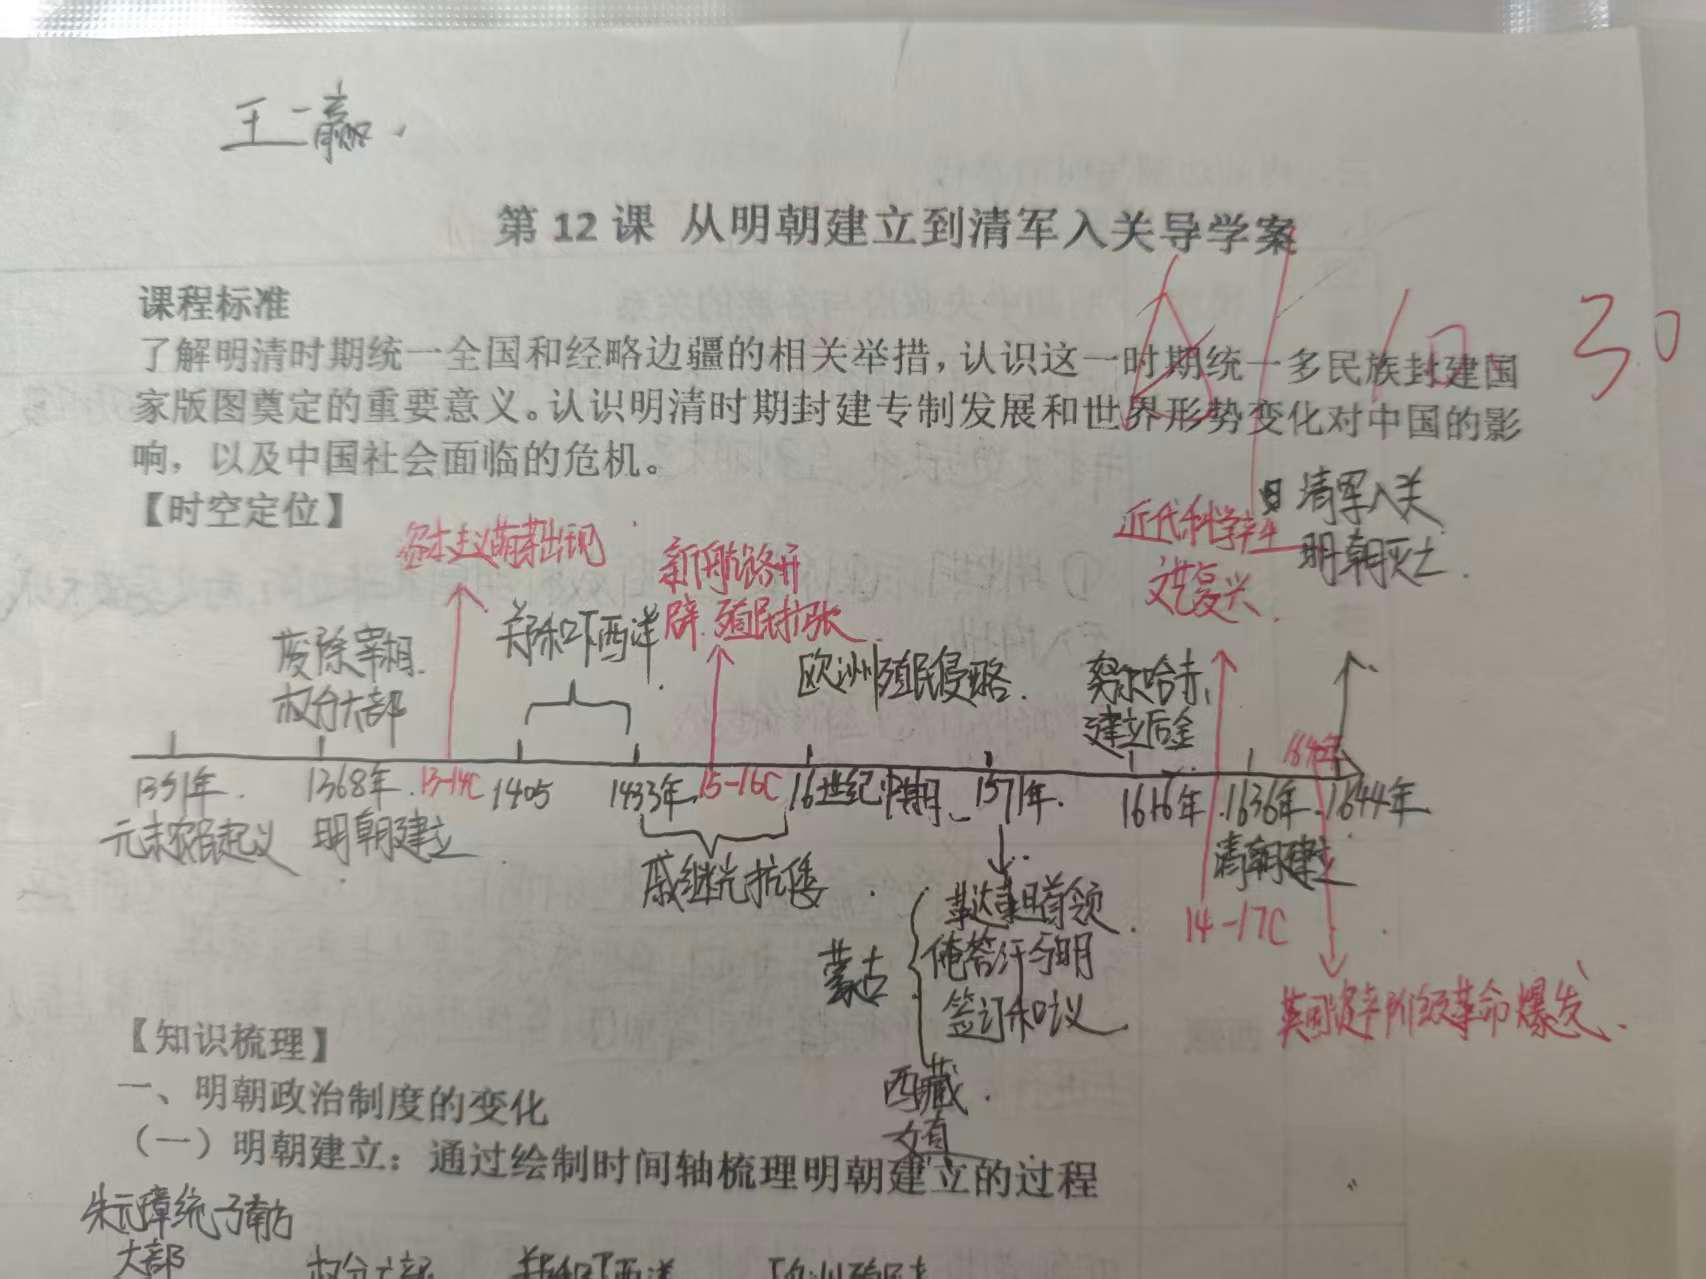 王一赢.
第 12 课 从明朝建立到清军入关导学案
30
课程标准
了解明清时期统一全国和经略边疆的相关举措，认识这一时期统一多民族封建国
家版图奠定的重要意义。认识明清时期封建专制发展和世界形势变化对中国的影
响，以及中国社会面临的危机。
【时空定位】
资本主义萌芽出现
新航路开
辟.殖民扩张
近代科学
文艺复兴
清军入关
明朝灭亡.
废除宰相.
权分六部
郑和下西洋
欧洲殖民侵略.
努尔哈赤
建立后金
1351年.
1368年.
13-14C
1405
1433年
15-16C
16世纪中期
1571年.
1616年
1636年
1644年
元末农民起义
明朝建立
戚继光抗倭
清朝建立
14-17C
蒙古
鞑靼首领
俺答汗与明
签订和议
西藏
女真
英国资产阶级革命爆发.
【知识梳理】
一、明朝政治制度的变化
（一）明朝建立：通过绘制时间轴梳理明朝建立的过程
朱元璋统了南方
大部
权分六部
郑和下西洋